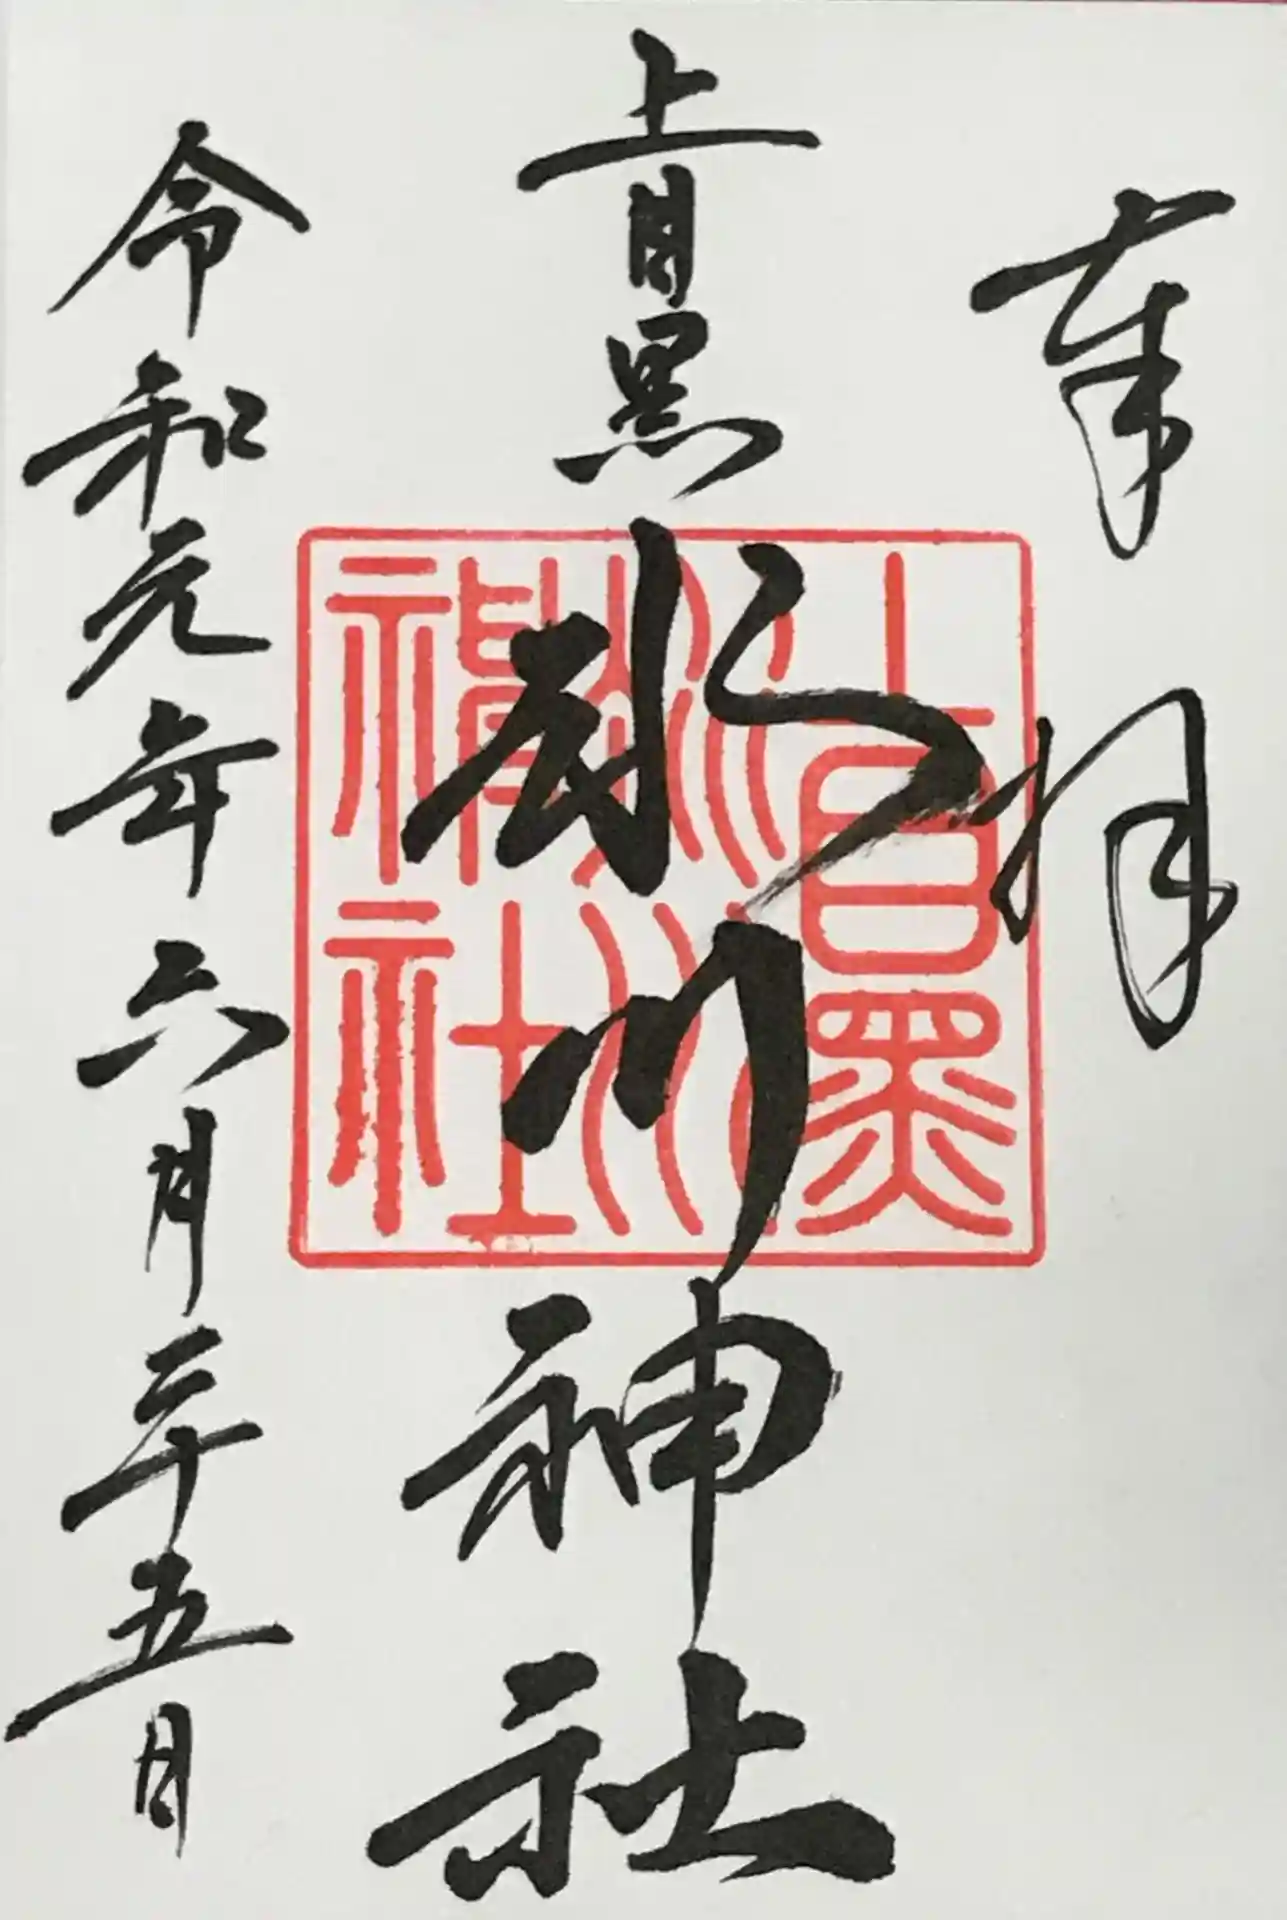 奉拝
上目黒氷川神社
上目黒
氷川
神社
令和元年六月二十五日